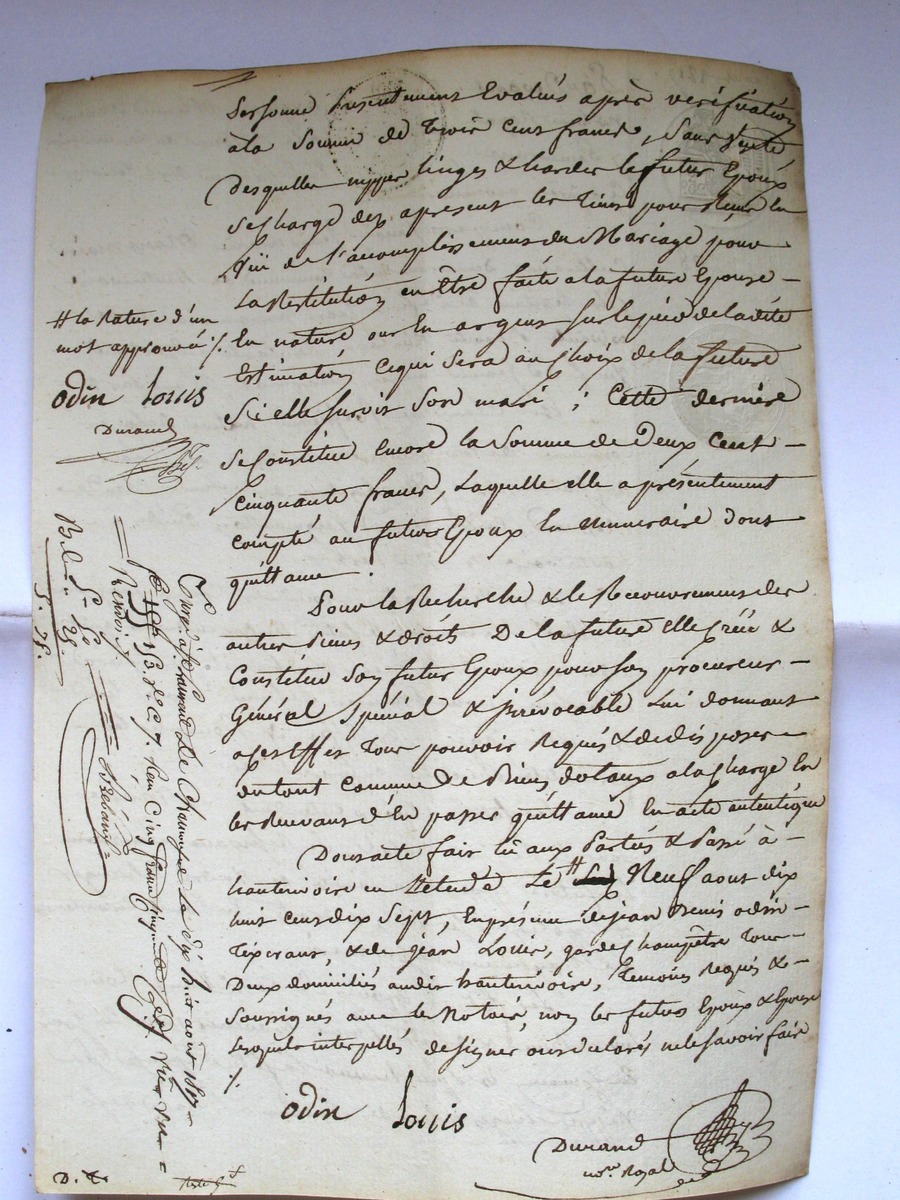 personne présentement Evalués après vérification
à la Somme de trois cent francs, Sans
Desquelles nippes linges & hardes le futur Epoux
Se charge dez apresent les
de l'acomplissement du Mariage pour
La Restitution en Être faite a la future Epouse
En nature ou En argent sur le pied de ladite
Estimation ce qui Sera au choix de la future
Si elle survit Son mari ; Cette dernière
Se Constitue Encore la Somme de Deux Cent
Cinquante francs, Laquelle elle a présentement
compté au futur Epoux En Numeraire dont
quittance .
Pour la Recherche & le Recouvrement des
autres Biens & droits De la future elle Crée &
Constitue Son futur Epoux pour Son procureur
Général Spécial & irrévocable Lui donnant
a cet Effet Tout pouvoir Requis & de disposer
du tout comme De Biens dotaux a la charge En
les Recevant d'En passer quittance En acte autentique
Dont acte fait lu aux Parties & Passé à
hauterivoire en l'étude Le # Neuf aout dix
huit cent dix Sept, En présence de jean Denis odin
Tixerant, & de jean Louis, garde champêtre Tous
Deux domiciliés audit hauterivoire, Temoins Requis &
Soussignés avec le Notaire, non les futurs Epoux & Epouse
lesquels interpellés de signer ont déclarés ne le savoir fait
./.
odin Louis
Durand
no.re Royal
# la Rature d'un
mot approuvée ./.
odin Louis
Durand
B. 5 - 50
25
5. 75.
Enreg.é à St Laurent De Chamousset le dix huit août 1817
f.o 155 v.o C. 7. Reçu Cinq francs cinquante Cent.
Renvoi
D. &